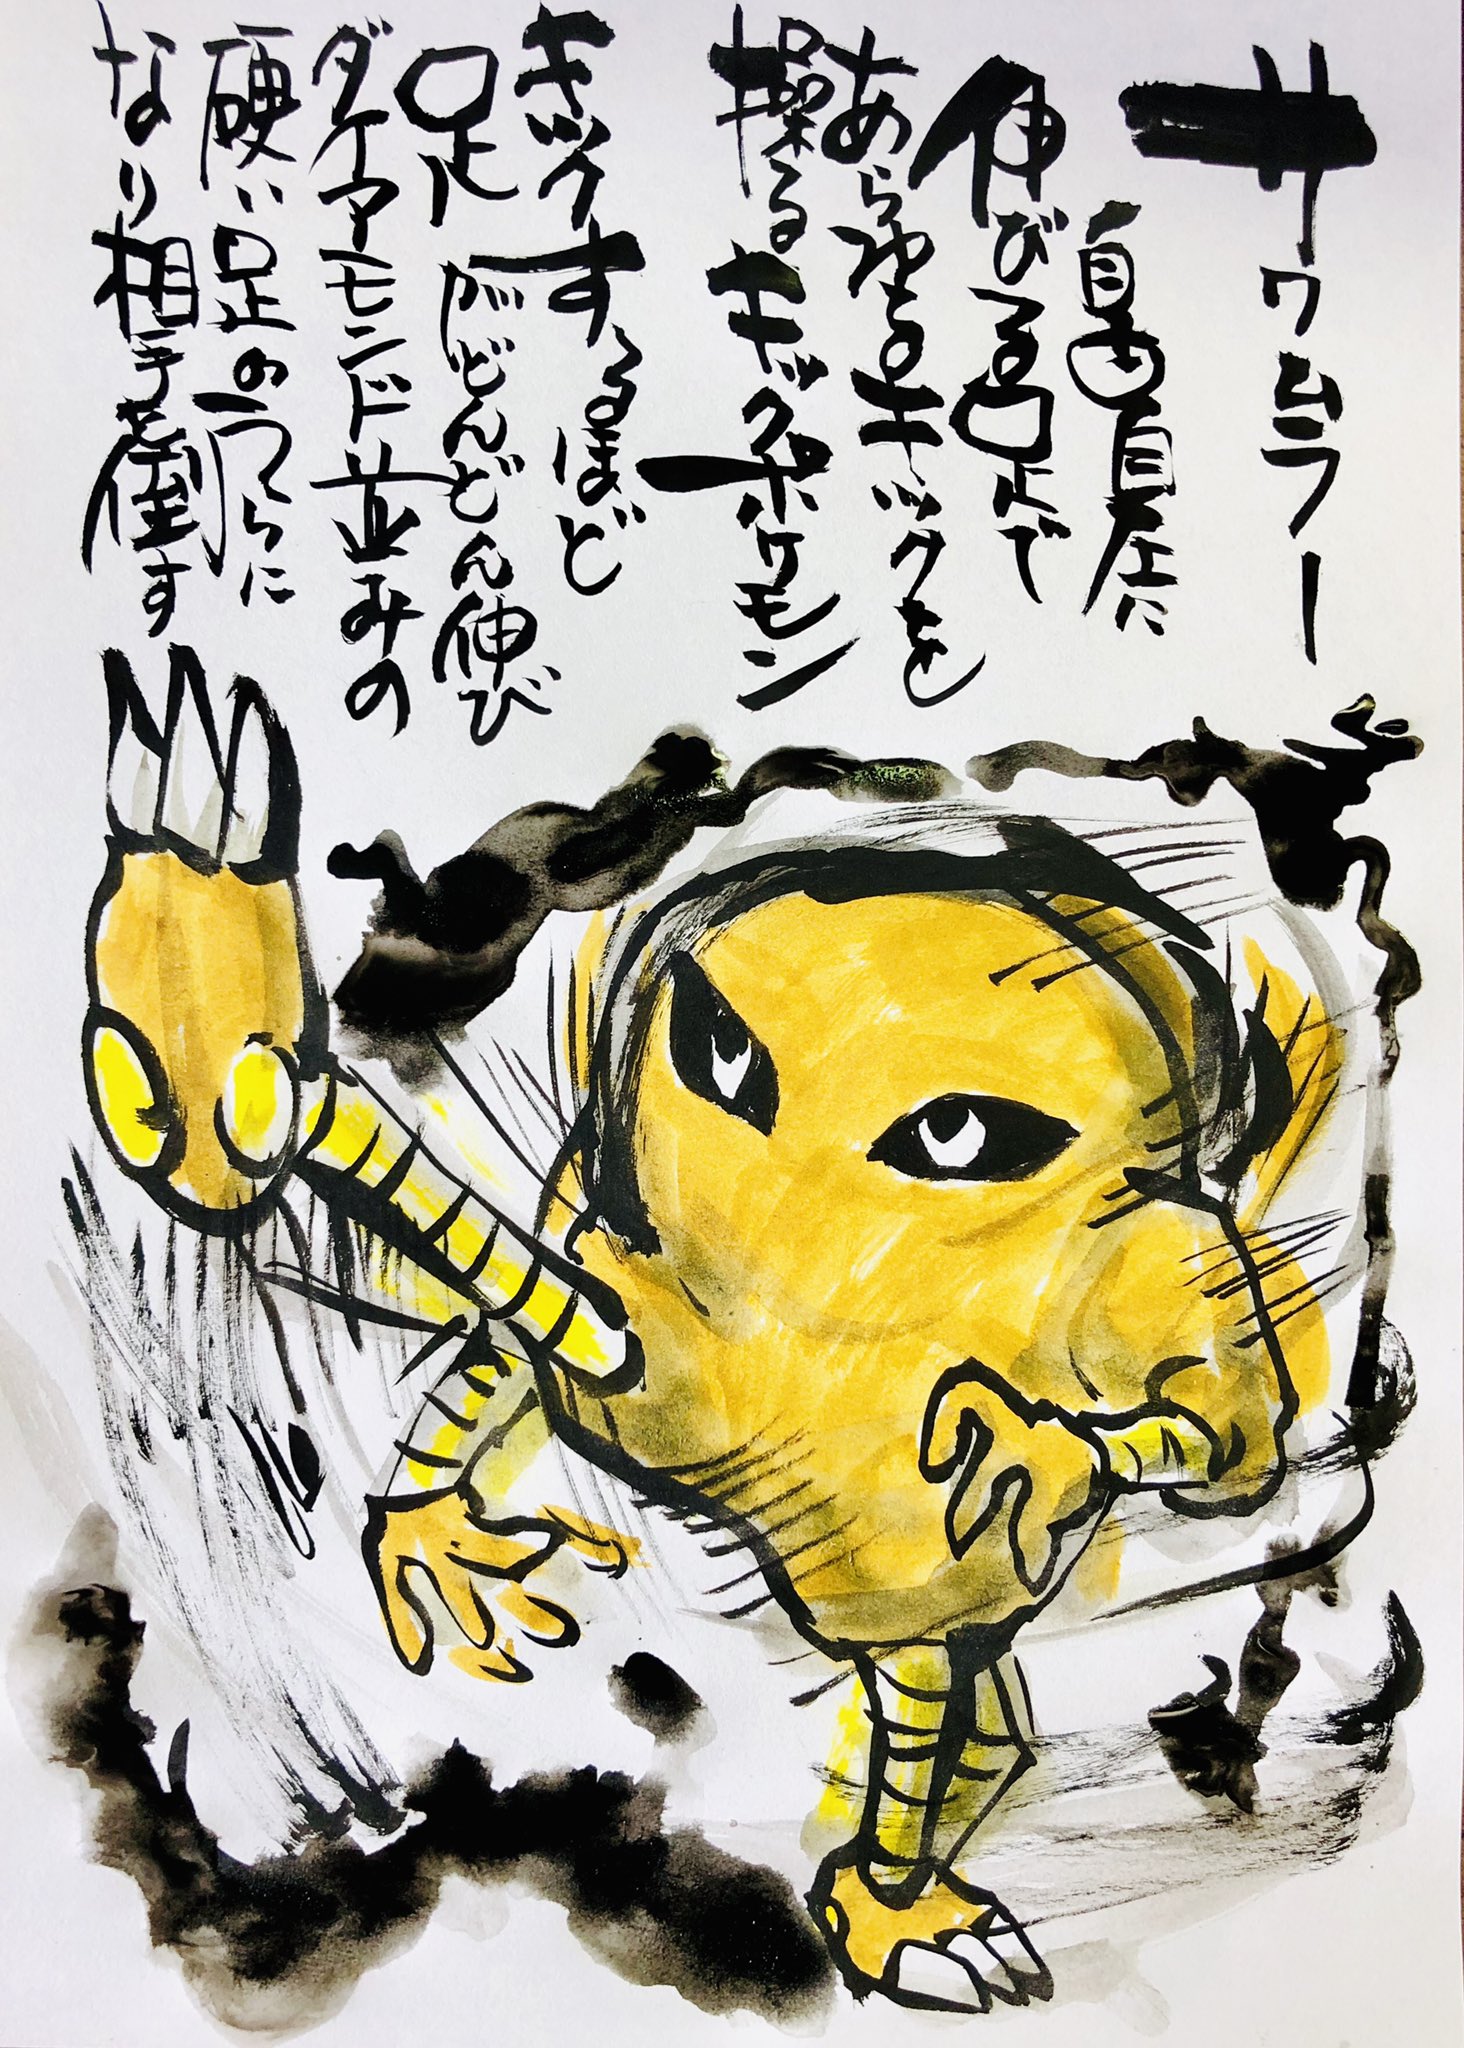 サワムラー
自由自在に
伸びる足で
あらゆるキックを
操るキックポケモン
キックするほど
足がどんどん伸び
ダイアモンド並みの
硬い足のうらに
なり相手を倒す